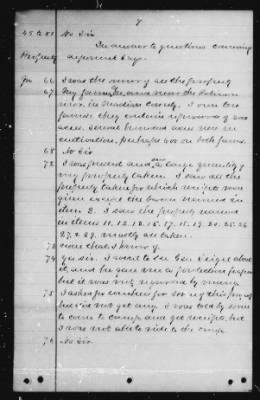 7
45 to 51 No Sir
In answer to questions concerning
Property deponent says.
66 I was the owner of all the property
67 My farms are near the Robinson
river in Madison County. I own two
farms they contain upwards of
acres. Several hundred acres were in
cultivation, perhaps 400 on both farms.
68 No Sir
72 I was present and saw a large quantity of
my property taken. I saw all the
property taken for which receipts were
given except the
item 3. I saw the property named
in items 11. 12. 13. 15. 17. 18. 19. 20. 25. 26
27. & 29. mostly all taken.
73 none that I know of.
74 yes sir. I went to see Gen Sigel about
it, and he gave me a protection paper
but it was only by many
75 I asked for vouchers for some of this property
but did not get any. I was told by some
to come to camp and get receipts, but
I was not able to ride to the camp.
76 No Sir